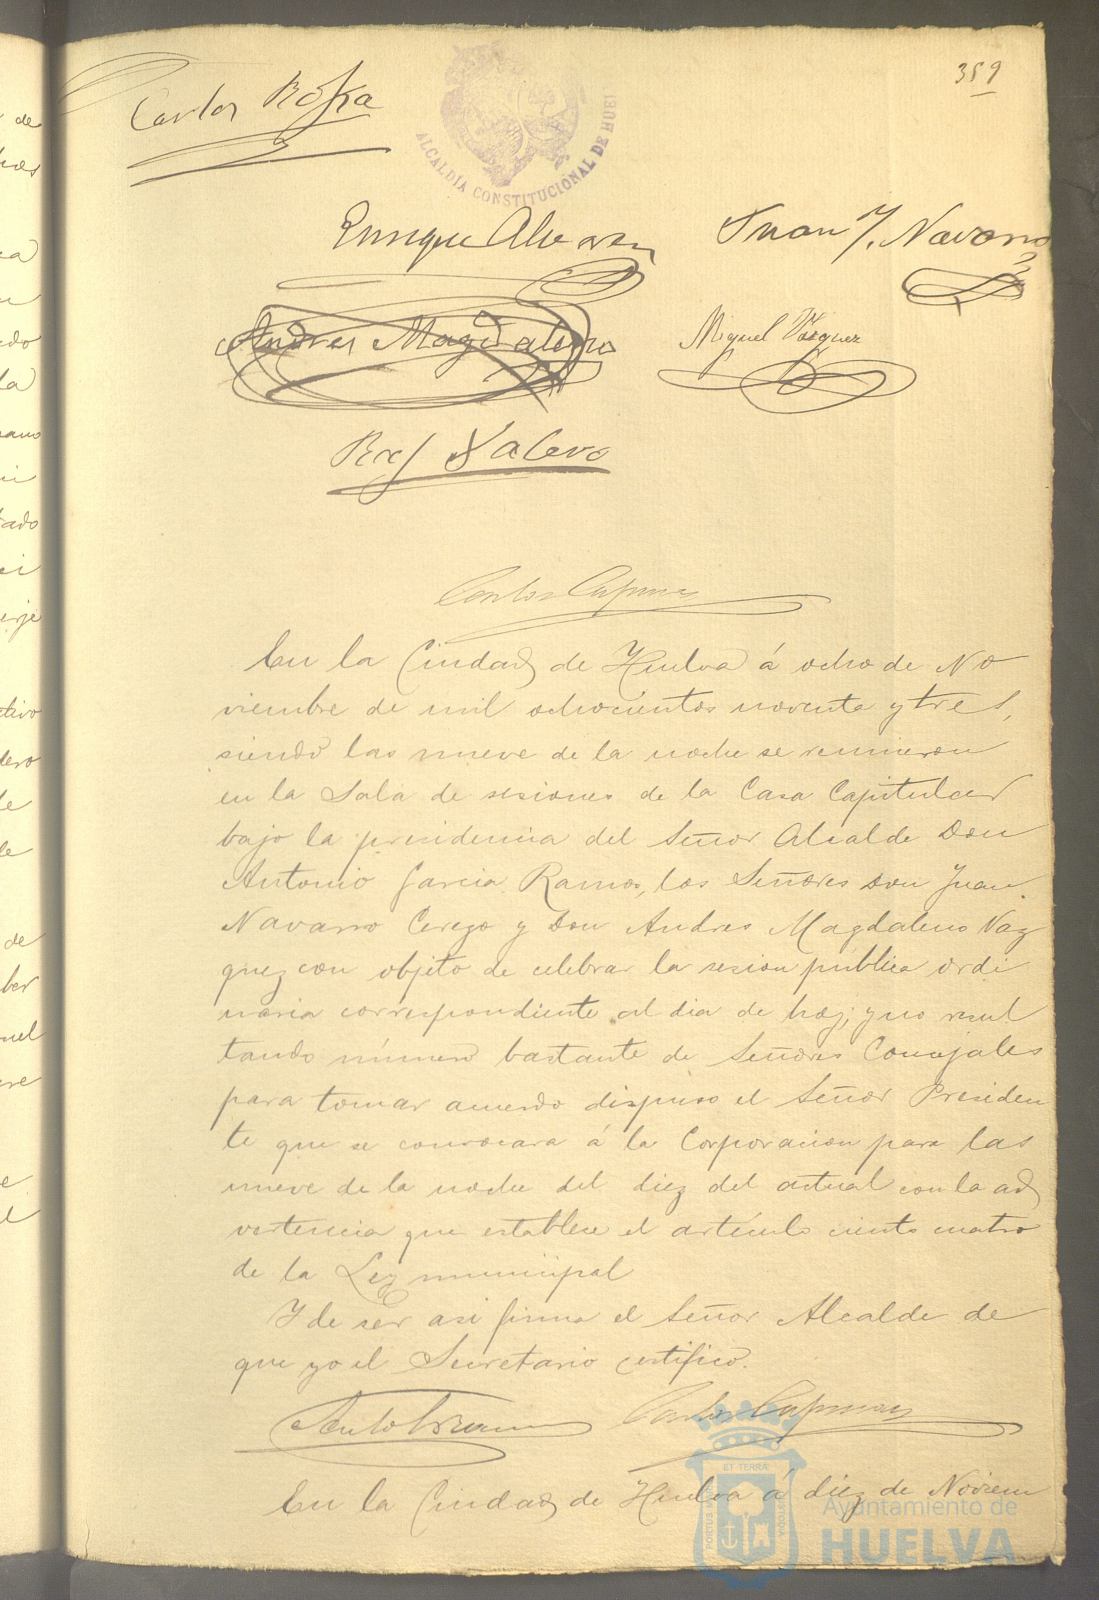 359
Carlos
ALCALDÍA CONSTITUCIONAL DE HUEL
Enrique Alvarez
Juan J. Navarro
Andres Magdaleno
Miguel Vázquez
Raf
Carlos
En la Ciudad de Huelva á ocho de No
viembre de mil ochocientos noventa y tres,
siendo las nueve de la noche se reunieron
en la Sala de sesiones de la Casa Capitular
bajo la presidencia del Señor Alcalde Don
Antonio Garcia Ramos, los Señores Don Juan
Navarro Cerezo y Don Andres Magdaleno Vaz
quez con objeto de celebrar la sesion pública ordi
naria correspondiente al dia de hoy; y no resul
tando número bastante de Señores Concejales
para tomar acuerdo dispuso el Señor Presiden
te que se convocara á la Corporacion para las
nueve de la noche del diez del actual con la ad
vertencia que establece el artículo ciento cuatro
de la Ley municipal
Y de ser asi firma el Señor Alcalde de
que yo el Secretario certifico.
Carlos
En la Ciudad de Huelva á diez de Noviem
ET TERRÆ
Ayuntamiento de
HUELVA